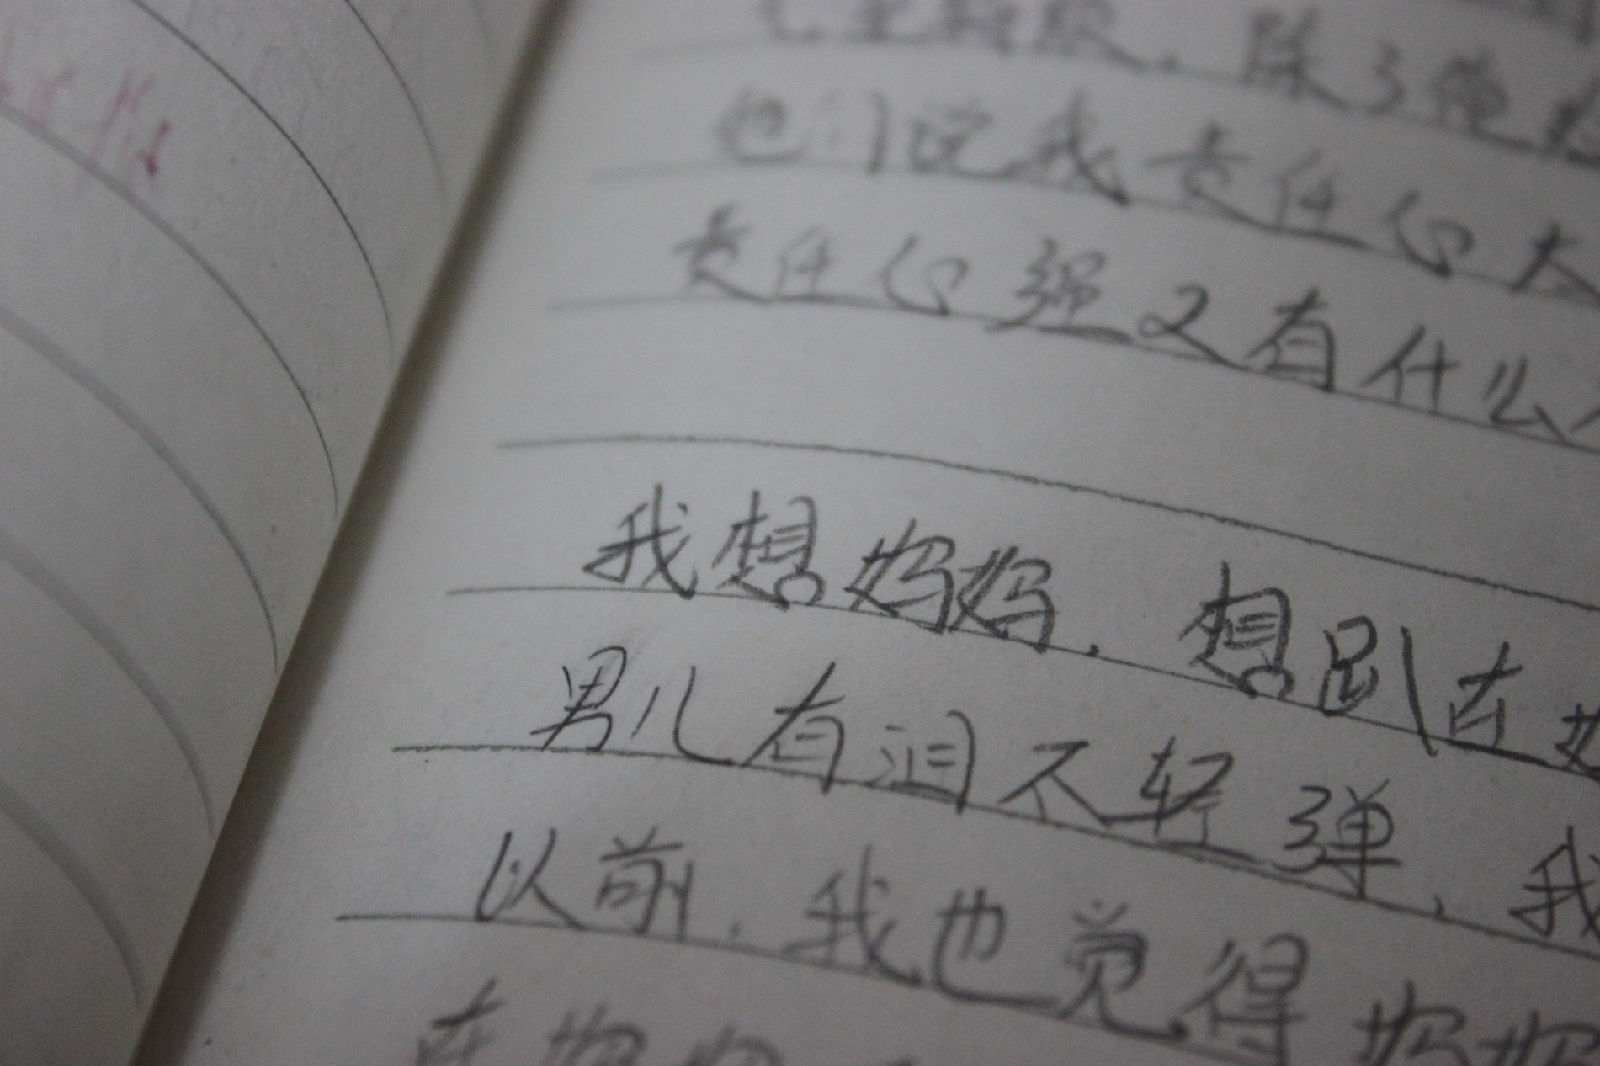 除了
他们说我责任心太
责任心强又有什么
我想妈妈，想趴在妈
男儿有泪不轻弹，我
以前，我也觉得妈妈
在妈妈